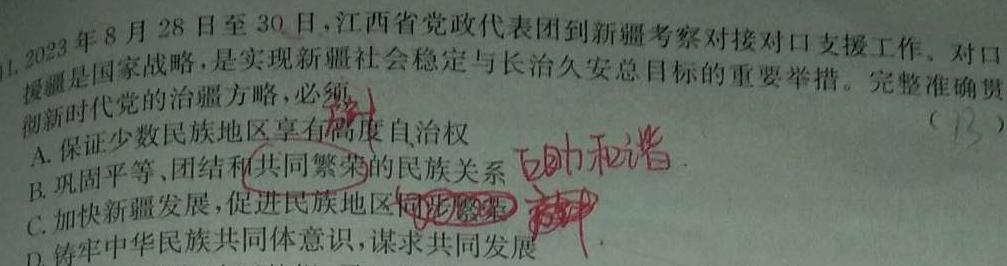 11. 2023年8月28日至30日,江西省党政代表团到新疆考察对接对口支援工作。对口
援疆是国家战略,是实现新疆社会稳定与长治久安总目标的重要举措。完整准确贯
彻新时代党的治疆方略,必须
( B )
A. 保证少数民族地区享有高度自治权
B. 巩固平等、团结和共同繁荣的民族关系 互助和谐.
C. 加快新疆发展,促进民族地区同步繁荣
D. 铸牢中华民族共同体意识,谋求共同发展